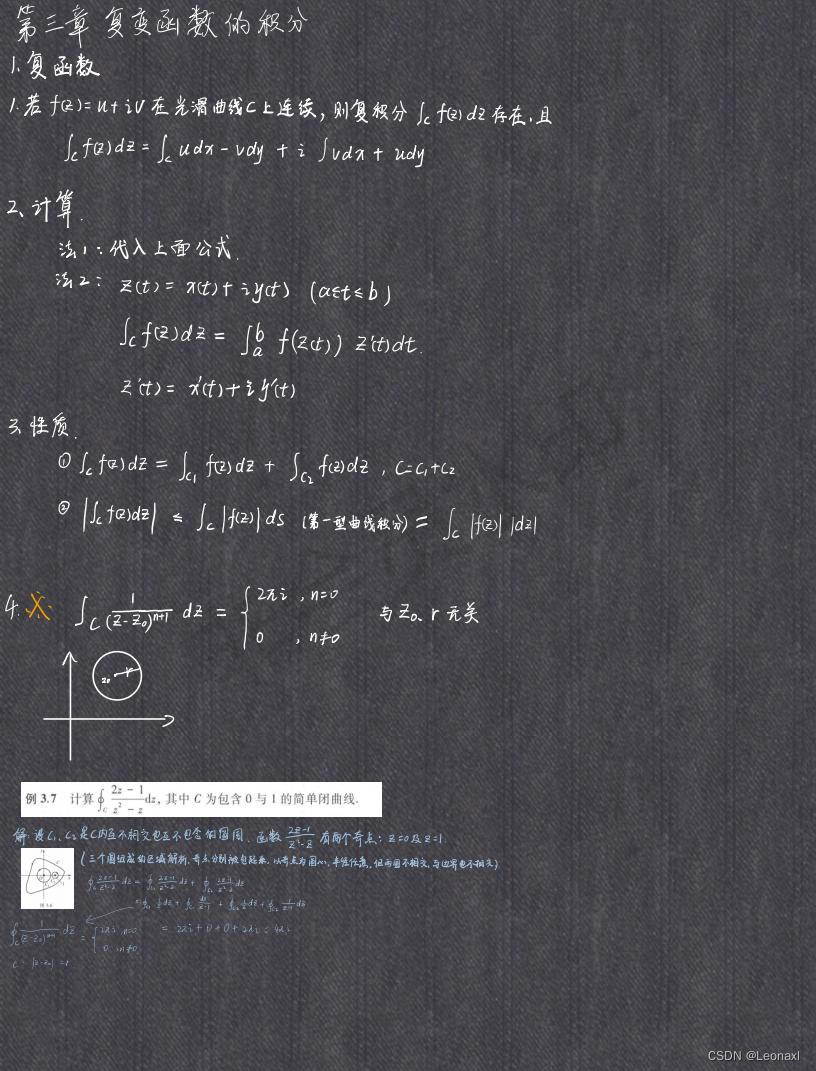 第三章 复变函数的积分
1. 复函数
1. 若 f(z) = u + iv 在光滑曲线C上连续, 则复积分 ∫_C f(z) dz 存在. 且
∫_C f(z) dz = ∫_C udx - vdy + i ∫ vdx + udy
2. 计算.
法1: 代入上面公式.
法2: z(t) = x(t) + iy(t) (a≤t≤b)
∫_C f(z) dz = ∫_a^b f(z(t)) z'(t) dt.
z'(t) = x'(t) + iy'(t)
3. 性质.
① ∫_C f(z) dz = ∫_{C_1} f(z) dz + ∫_{C_2} f(z) dz , C=C_1+C_2
② |∫_C f(z) dz| ≤ ∫_C |f(z)| ds (第一型曲线积分) = ∫_C |f(z)| |dz|
4. ※ ∫_C 1/(z-z_0)^{n+1} dz = { 2πi , n=0 与 z_0、r 无关
0 , n≠0
z_0 r
例 3.7 计算∮_C (2z-1)/(z^2-z) dz, 其中 C 为包含 0 与 1 的简单闭曲线.
解: 设 C_1, C_2 是C内互不相交也互不包含的圆周. 函数 (2z-1)/(z^2-z) 有两个奇点: z=0 及 z=1.
(三个围线成的区域解析, 奇点分别被包起来, 以奇点为圆心, 半径任意, 但两圆不相交, 与边界也不相交)
∮_C (2z-1)/(z^2-z) dz = ∮_{C_1} (2z-1)/(z^2-z) dz + ∮_{C_2} (2z-1)/(z^2-z) dz
= ∮_{C_1} 1/z dz + ∮_{C_1} dz/(z-1) + ∮_{C_2} 1/z dz + ∮_{C_2} 1/(z-1) dz
∮_C 1/(z-z_0)^{n+1} dz = { 2πi n=0 = 2πi + 0 + 0 + 2πi = 4πi
0 n≠0
C: |z-z_0| = r
CSDN @Leonaxl